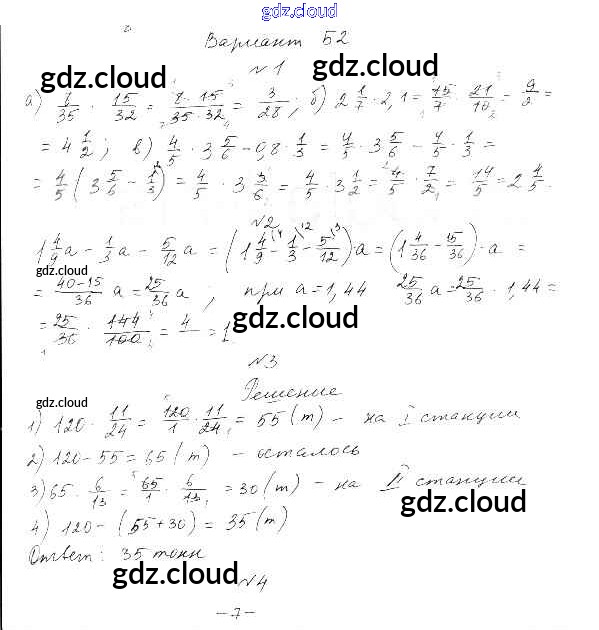 gdz.cloud
Вариант Б2
gdz.cloud gdz.cloud
№1
а) 8/35 · 15/32 = 8·15/35·32 = 3/28; б) 2 1/7 · 2,1 = 15/7 · 21/10 = 9/2 =
= 4 1/2; в) 4/5 · 3 5/6 - 0,8 · 1/3 = 4/5 · 3 5/6 - 4/5 · 1/3 =
= 4/5 (3 5/6 - 1/3) = 4/5 · 3 3/6 = 4/5 · 3 1/2 = 4/5 · 7/2 = 14/5 = 2 4/5.
№2
1 4/9 a - 1/3 a - 5/12 a = (1 4/9 - 1/3 - 5/12) · a = (1 4/36 - 15/36) · a =
gdz.cloud
= 40-15/36 a = 25/36 a; при a = 1,44 25/36 a = 25/36 · 1,44 =
= 25/36 · 144/100 = 4/ = 1
gdz.cloud
№3
Решение
gdz.cloud
1) 120 · 11/24 = 120/1 · 11/24 = 55 (т) - на I станции
2) 120 - 55 = 65 (т) - осталось
gdz.cloud
3) 65 · 6/13 = 65/1 · 6/13 = 30 (т) - на II станции
gdz.cloud
4) 120 - (55 + 30) = 35 (т)
Ответ: 35 тонн
gdz.cloud
№4
- 7 -